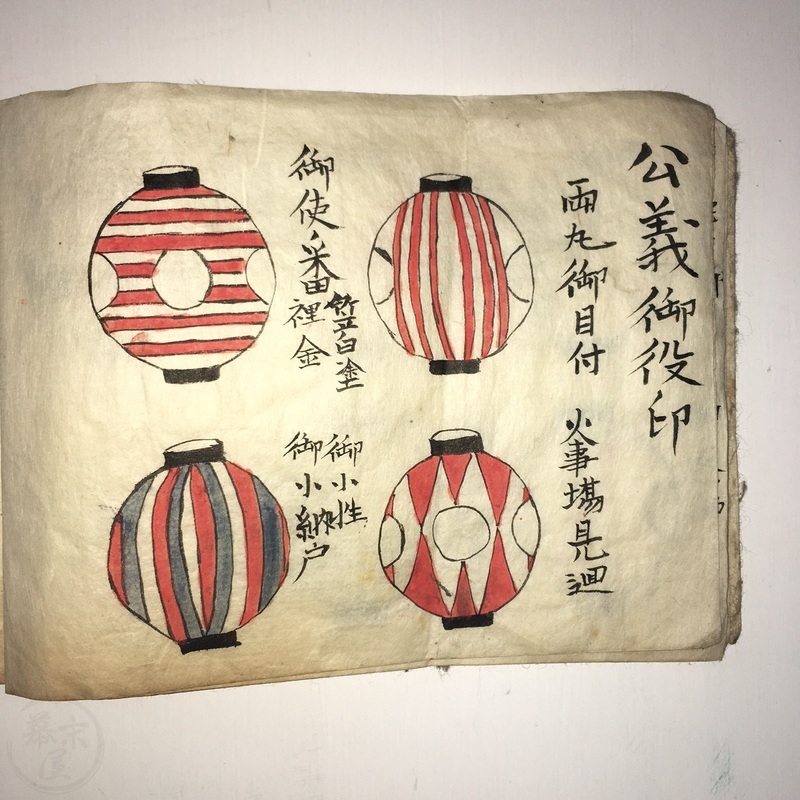 公義御役印
両丸御目付
火事場見廻
御使ノ番
笠白塗
裡金
御小性
御小納戸
幕末屋